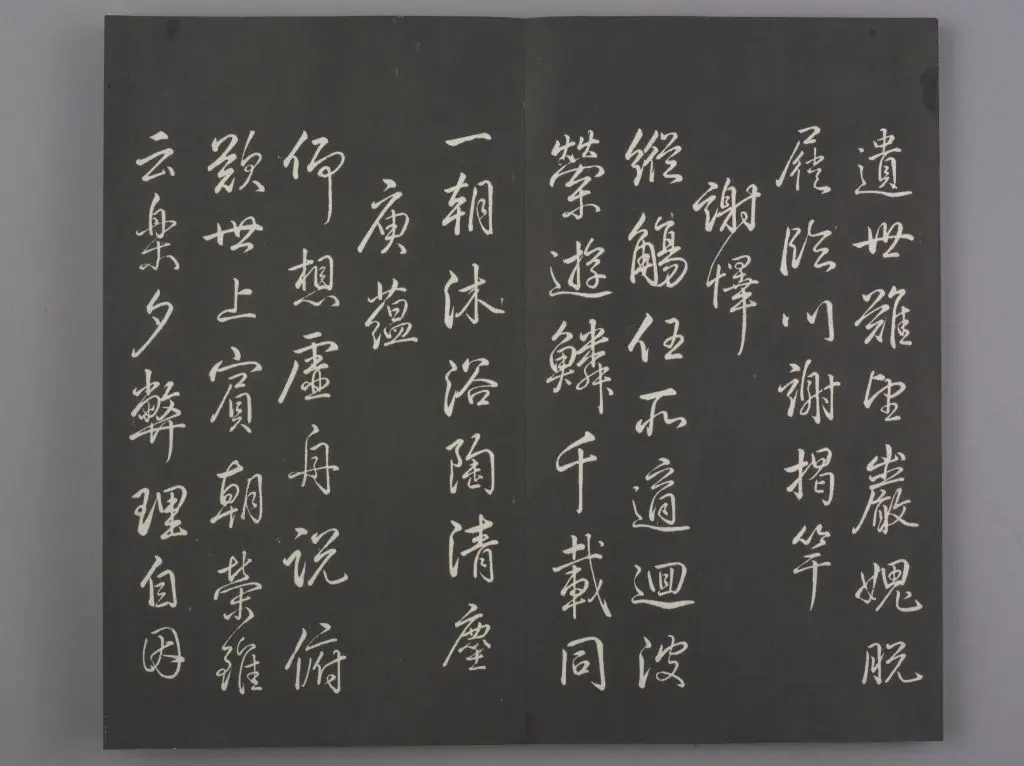 遺世難望巖媿脫
屣臨川謝揭竿
謝懌
縱觴任所適迴波
縈遊鱗千載同
一朝沐浴陶清塵
庾蘊
仰想虛舟說俯
歎世上賓朝榮雖
云樂夕弊理自因